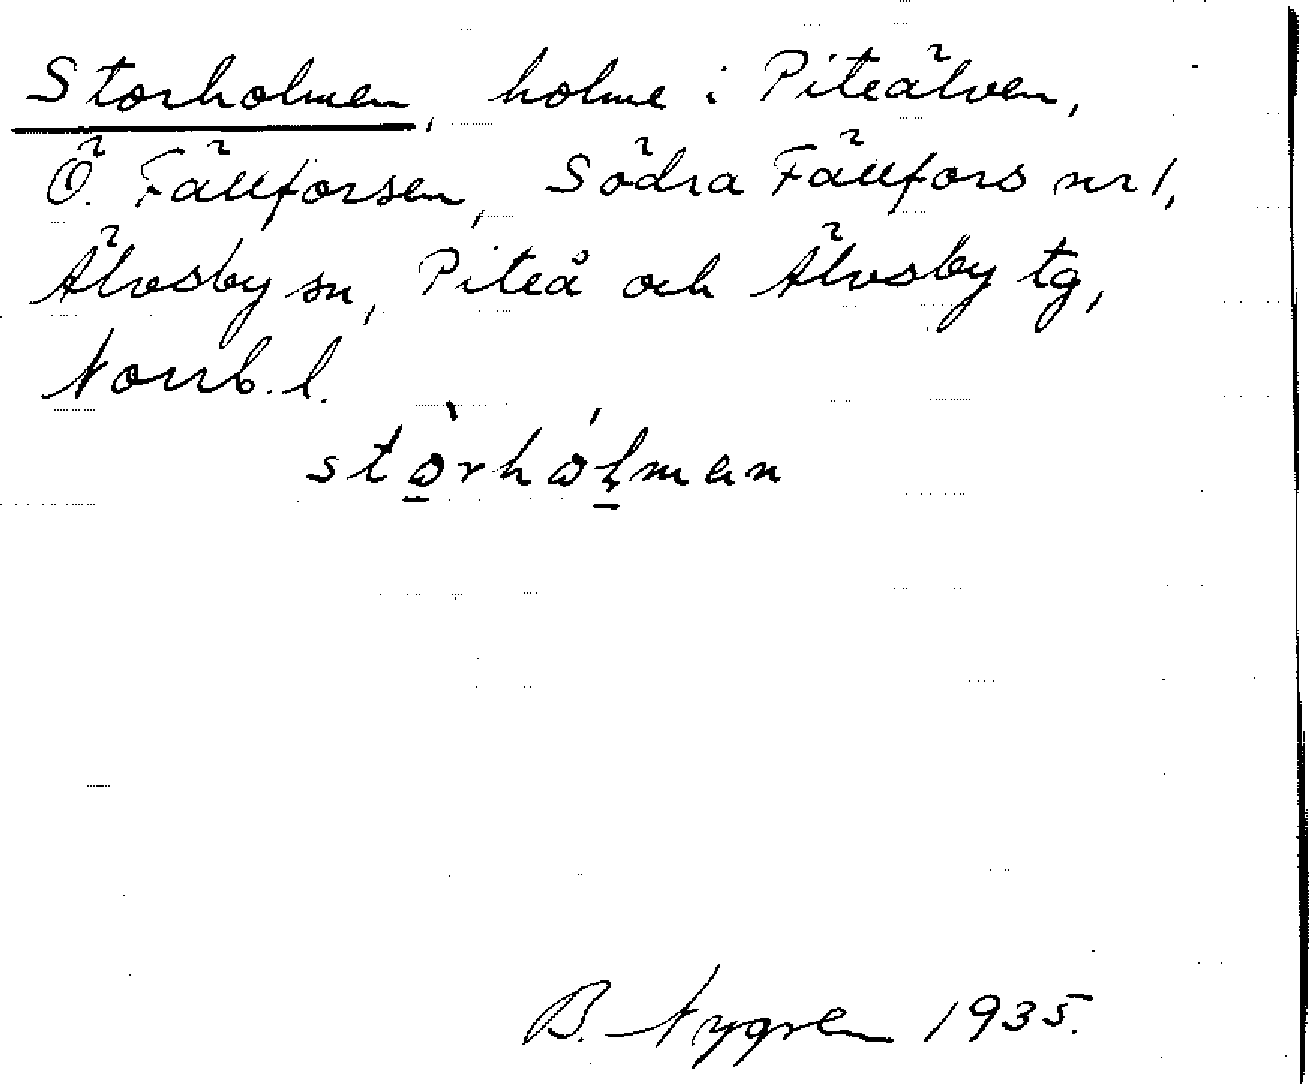 Storholmen, holme i Piteälven,
Ö. Fällforsen, Södra Fällfors nr 1,
Älvsby sn, Piteå och Älvsby tg,
Norrb. l.
stò̠rhál̠man
B. Nygren 1935.